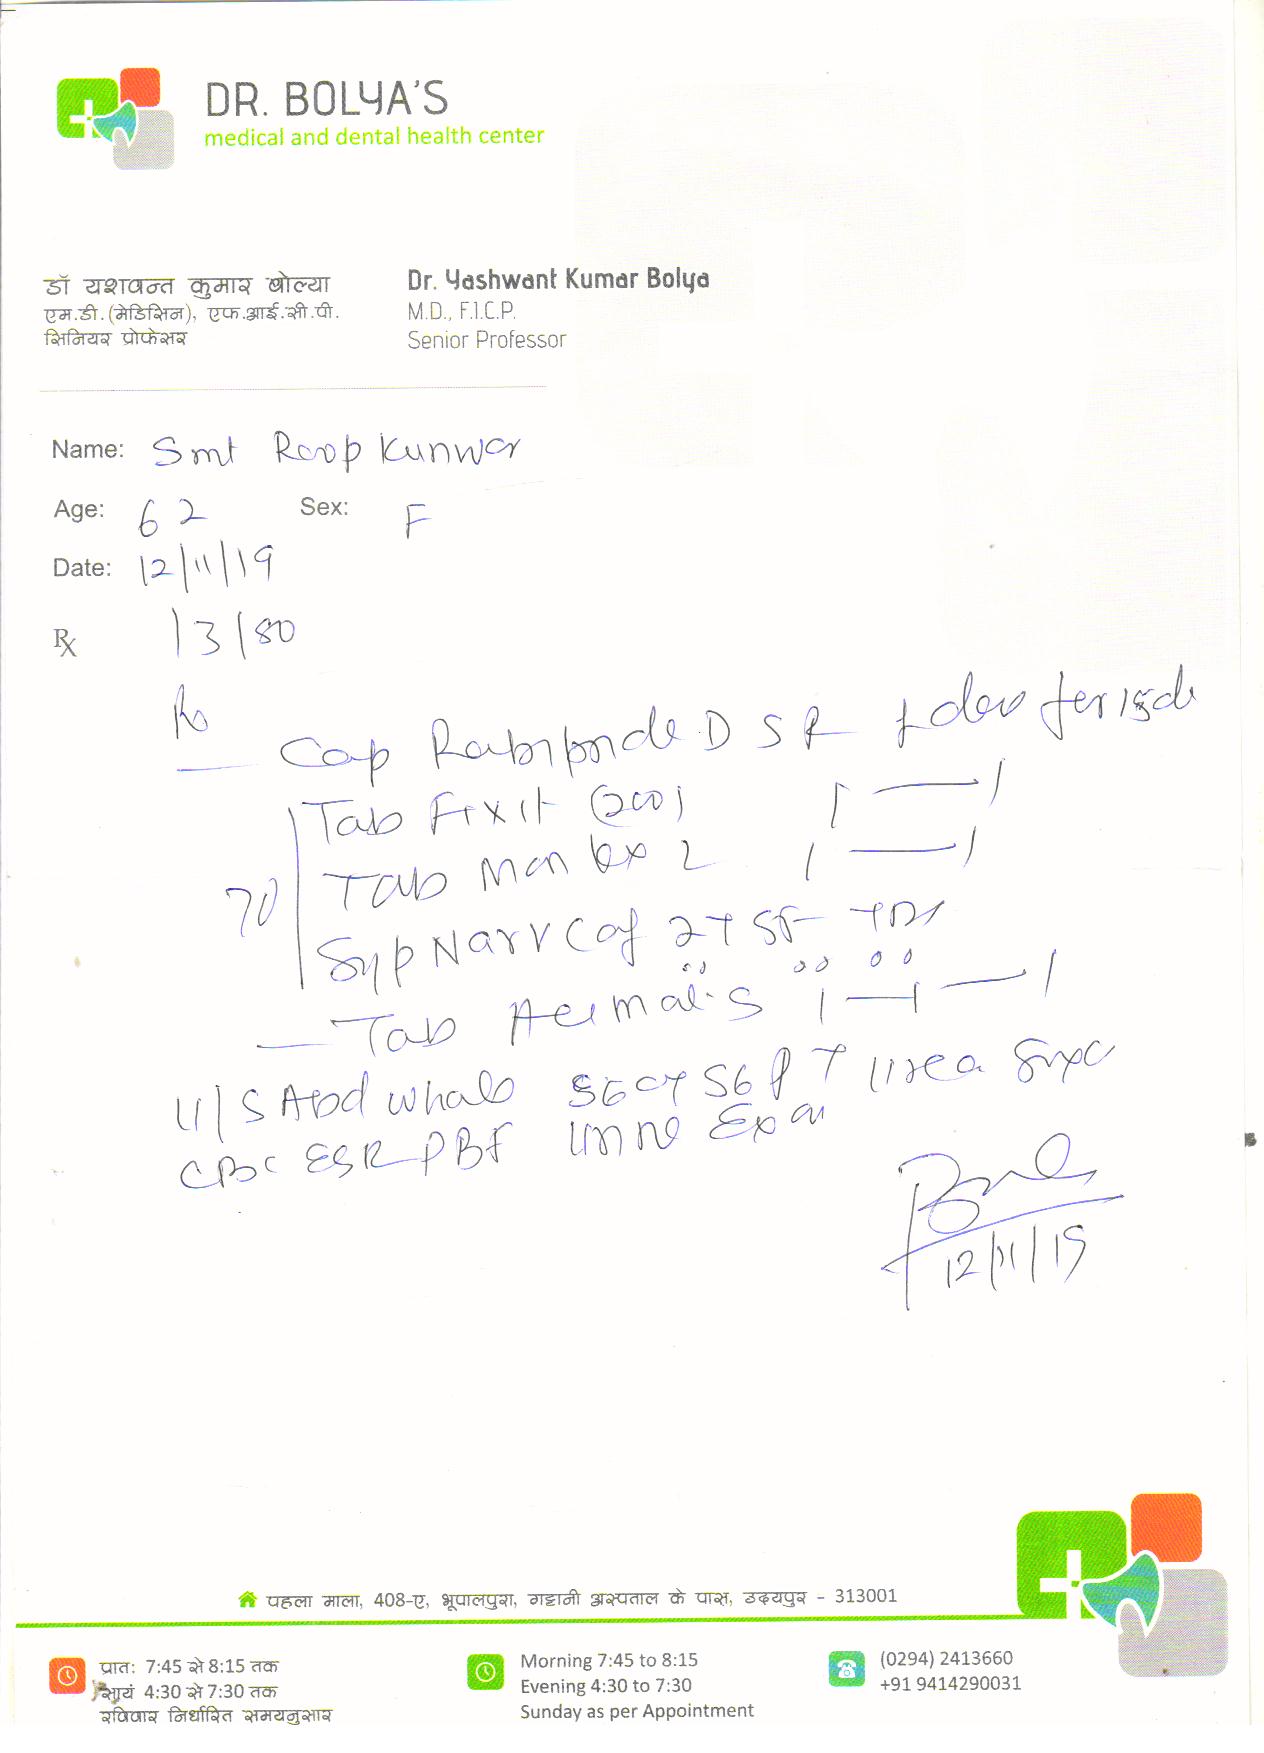 DR. BOLYA'S
medical and dental health center
डॉ यशवन्त कुमार बोल्या
एम.डी.(मेडिसिन), एफ.आई.सी.पी.
सिनियर प्रोफेसर
Dr. Yashwant Kumar Bolya
M.D., F.I.C.P.
Senior Professor
Name: Smt Roop Kunwar
Age: 62 Sex: F
Date: 12/11/19
Rx 13/80
Cap DSR for 15d
Tab Fixit (200) 1 — 1
Tab 2 1 — 1
70
Syp 2T SF TDS
Tab S 1 — 1 — 1
U/S Abd whole SGOT SGPT Urea
CBC ESR PBF Urine Exam
12/11/19
पहला माला, 408-ए, भूपालपुरा, गट्टानी अस्पताल के पास, उदयपुर - 313001
प्रात: 7:45 से 8:15 तक
सायं 4:30 से 7:30 तक
रविवार निर्धारित समयनुसार
Morning 7:45 to 8:15
Evening 4:30 to 7:30
Sunday as per Appointment
(0294) 2413660
+91 9414290031